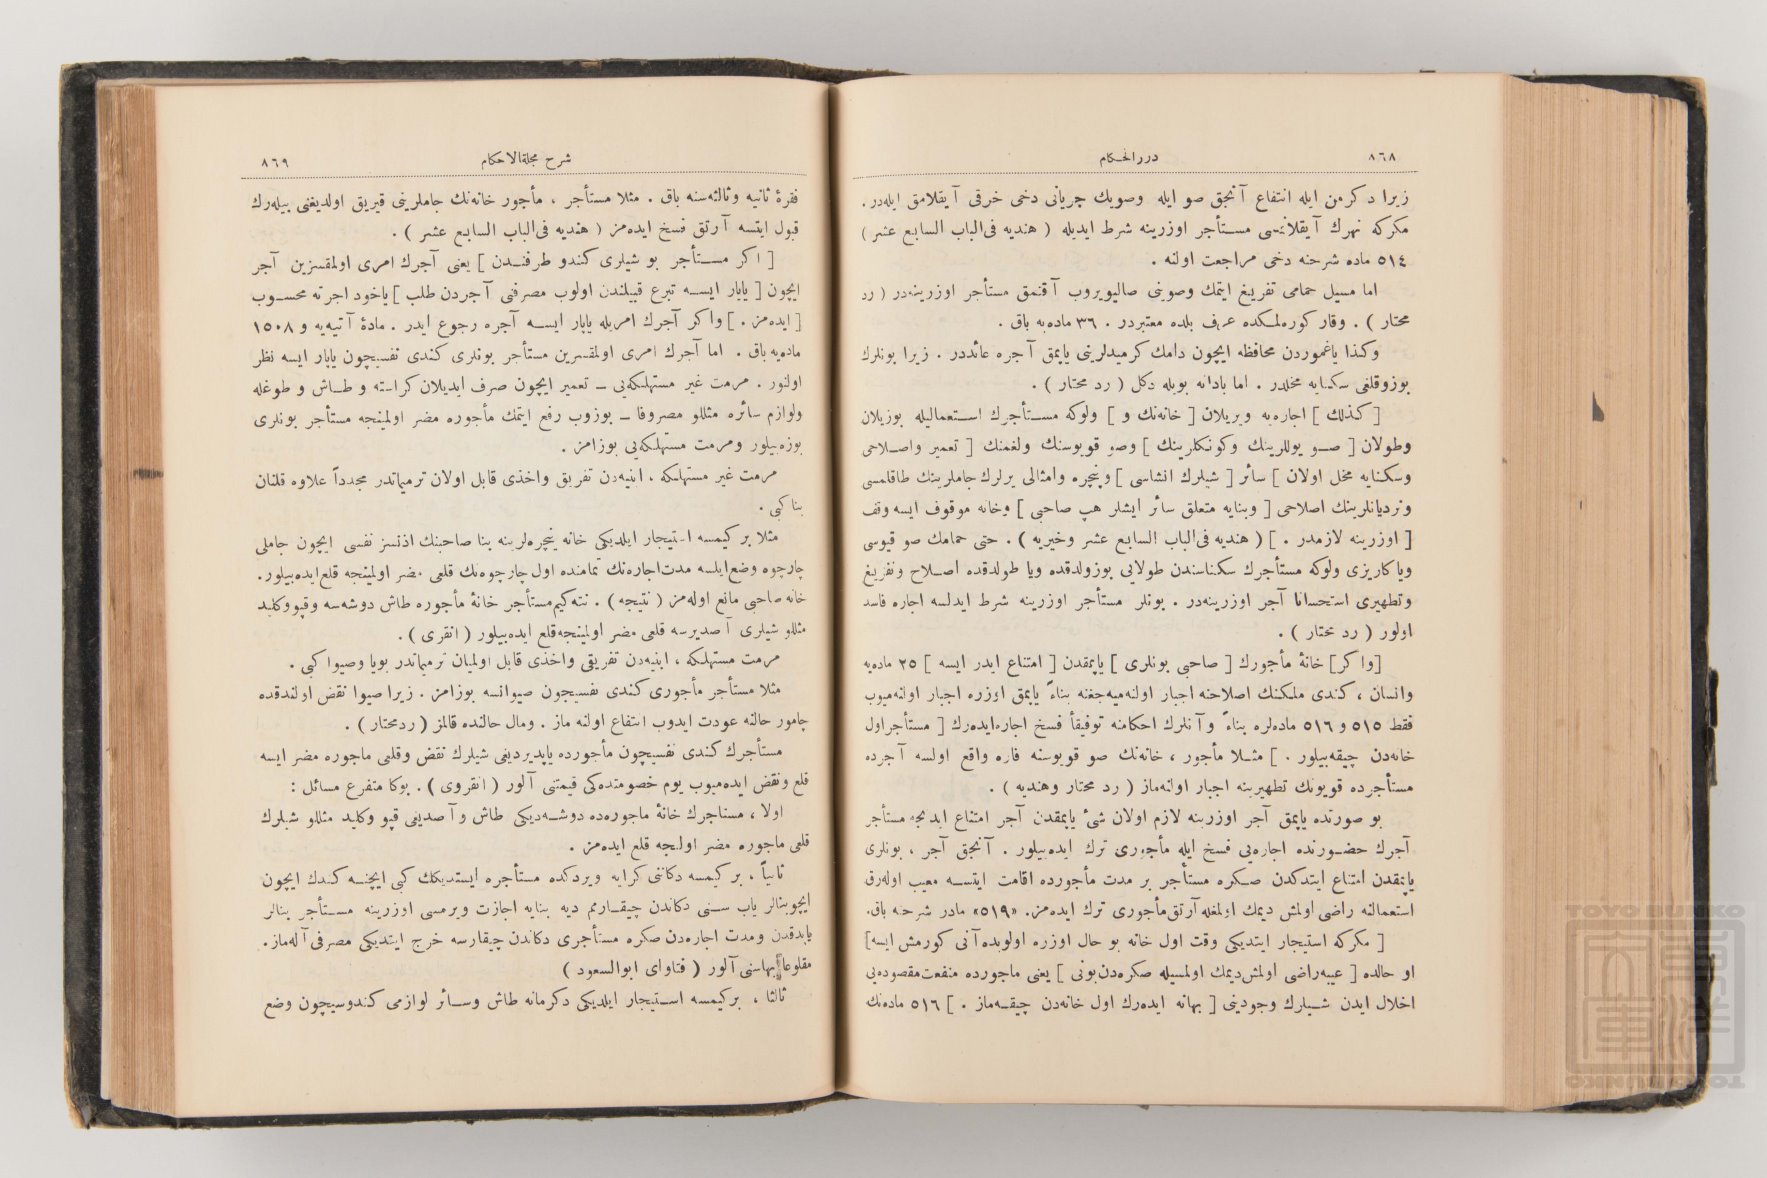 ٨٦٨
دررالحكام
زيرا دكرمن ايله انتفاع آنجق صو ايله وصويك جريانى دخى خرقى آيقلامق ايله‌در.
مكركه نهرك آيقلانمسى مستأجر اوزرينه شرط ايديله ( هنديه فى‌الباب السابع عشر )
٥١٤ ماده شرحنه دخى مراجعت اولنه .
اما مسيل حمامى تفريغ ايتمك وصوينى صاليويروب آقتمق مستأجر اوزرينه‌در ( رد
مختار ) . وقار كوره‌لمكده عرف بلده معتبردر . ٣٦ ماده‌يه باق .
وكذا ياغموردن محافظه ايچون دامك كرميدلرينى ياپمق آجره عائددر . زيرا بونلرك
بوزوقلغى سكنايه مخلدر . اما بادانه بويله دكل ( رد محتار ) .
[ كذلك ] اجاره‌يه ويريلان [ خانه‌نك و ] ولوكه مستأجرك استعماليله بوزيلان
وطولان [ صو يوللرينك وكونكلرينك ] وصو قويوسنك ولغمنك [ تعمير واصلاحى
وسكنايه مخل اولان ] سائر [ شيلرك انشاسى ] وپنجره وامثالى يرلرك جاملرينك طاقلمسى
ونرديانلرينك اصلاحى [ وبنايه متعلق سائر ايشلر هپ صاحبى ] وخانه موقوف ايسه وقف
[ اوزرينه لازمدر . ] ( هنديه فى‌الباب السابع عشر وخيريه ) . حتى حمامك صو قيوسى
وياكاريزى ولوكه مستأجرك سكناسندن طولايى بوزولدقده ويا طولدقده اصلاح وتفريغ
وتطهيرى استحسانا آجر اوزرينه‌در . بونلر مستأجر اوزرينه شرط ايدلسه اجاره فاسد
اولور ( رد محتار ) .
[واكر] خانۀ مأجورك [ صاحبى بونلرى ] ياپمقدن [ امتناع ايدر ايسه ] ٢٥ ماده‌يه
وانسان ، كندى ملكنك اصلاحنه اجبار اولنه‌ميه‌جغنه بناءً ياپمق اوزره اجبار اولنه‌ميوب
فقط ٥١٥ و ٥١٦ ماده‌لره بناءً وآنلرك احكامنه توفيقأ فسخ اجاره‌ايده‌رك [ مستأجراول
خانه‌دن چيقه‌بيلور . ] مثلا مأجور ، خانه‌نك صو قويوسنه فاره واقع اولسه آجرده
مستأجرده قويونك تطهيرينه اجبار اولنه‌ماز ( رد محتار وهنديه ) .
بو صورتده ياپمق آجر اوزرينه لازم اولان شئ ياپمقدن آجر امتناع ايدنجه مستأجر
آجرك حضورنده اجاره‌يى فسخ ايله مأجورى ترك ايده‌بيلور . آنجق آجر ، بونلرى
ياپمقدن امتناع ايتدكدن صكره مستأجر بر مدت مأجورده اقامت ايتسه معيب اوله‌رق
استعمالنه راضى اولمش ديمك اولمغله آرتق‌مأجورى ترك ايده‌مز. «٥١٩» مادر شرحنه باق.
[ مكركه استيجار ايتديكى وقت اول خانه بو حال اوزره اولوبده‌آنى كورمش ايسه]
او حالده [ عيبه‌راضى اولمش‌ديمك اولمسيله صكره‌دن‌بونى ] يعنى ماجورده منفعت‌مقصوده‌يى
اخلال ايدن شيلرك وجودينى [ بهانه ايده‌رك اول خانه‌دن چيقه‌ماز . ] ٥١٦ ماده‌نك
شرح مجلة‌الاحكام
٨٦٩
فقرۀ ثانيه وثالثه‌سنه باق . مثلا مستأجر ، مأجور خانه‌نك جاملرينى قيريق اولديغنى بيله‌رك
قبول ايتسه آرتق فسخ ايده‌مز ( هنديه فى‌الباب السابع عشر ) .
[ اكر مستأجر بو شيلرى كندو طرفندن ] يعنى آجرك امرى اولمقسزين آجر
ايچون [ ياپار ايسه تبرع قبيلندن اولوب مصرفنى آجردن طلب ] ياخود اجرته محسوب
[ ايده‌مز . ] واكر آجرك امريله ياپار ايسه آجره رجوع ايدر . مادۀ آتيه‌يه و ١٥٠٨
ماده‌يه باق . اما آجرك امرى اولمقسزين مستأجر بونلرى كندى نفسيچون ياپار ايسه نظر
اولنور . مرمت غير مستهلكه‌يى ـ تعمير ايچون صرف ايديلان كراسته و طاش و طوغله
ولوازم سائره مثللو مصروفا ـ بوزوب رفع ايتمك مأجوره مضر اولمينجه مستأجر بونلرى
بوزه‌بيلور ومرمت مستهلكه‌يى بوزامز .
مرمت غير مستهلكه ، ابنيه‌دن تفريق واخذى قابل اولان ترميماتدر مجدداً علاوه قلنان
بنا كبى .
مثلا بر كيمسه استيجار ايلديكى خانه پنجره‌لرينه بنا صاحبنك اذنسز نفسى ايچون جاملى
چارچوه وضع‌ايلسه مدت‌اجاره‌نك تمامنده اول چارچوه‌نك قلعى مضر اولمينجه قلع‌ايده‌بيلور.
خانه صاحبى مانع اوله‌مز ( نتيجه ) . نته‌كيم‌مستأجر خانۀ مأجوره طاش دوشه‌سه وقپووكليد
مثللو شيلرى آصديرسه قلعى مضر اولمينجه‌قلع ايده‌بيلور ( انقرى ) .
مرمت مستهلكه ، ابنيه‌دن تفريقى واخذى قابل اولميان ترميماتدر بويا وصيوا كبى .
مثلا مستأجر مأجورى كندى نفسيچون صيوانسه بوزامز . زيرا صيوا نقض اولندقده
چامور حالنه عودت ايدوب انتفاع اولنه ماز . ومال حالنده قالمز ( ردمحتار ) .
مستأجرك كندى نفسيچون مأجورده ياپديرديغى شيلرك نقض وقلعى ماجوره مضر ايسه
قلع ونقض ايده‌ميوب يوم خصومتده‌كى قيمتنى آلور ( انقروى ) . بوكا متفرع مسائل :
اولا ، مستاجرك خانۀ ماجوره‌ده دوشه‌ديكى طاش وآصديغى قپو وكليد مثللو شيلرك
قلعى ماجوره مضر اولنجه قلع ايده‌مز .
ثانياً ، بر كيمسه دكاننى كرايه ويردكده مستأجره ايستديكك كبى ايچنه كندك ايچون
ايچوبنالر ياپ سنى دكاندن چيقارمم ديه بنايه اجازت ويرمسى اوزرينه مستأجر بنالر
ياپدقدن ومدت اجاره‌دن صكره مستأجرى دكاندن چيقارسه خرج ايتديكى مصرفى آله‌ماز.
مقلوعاً بهاسنى آلور ( فتاواى ابوالسعود )
ثالثا ، بركيمسه استيجار ايلديكى دكرمانه طاش وسائر لوازمى كندوسيچون وضع
TOYO BUNKO